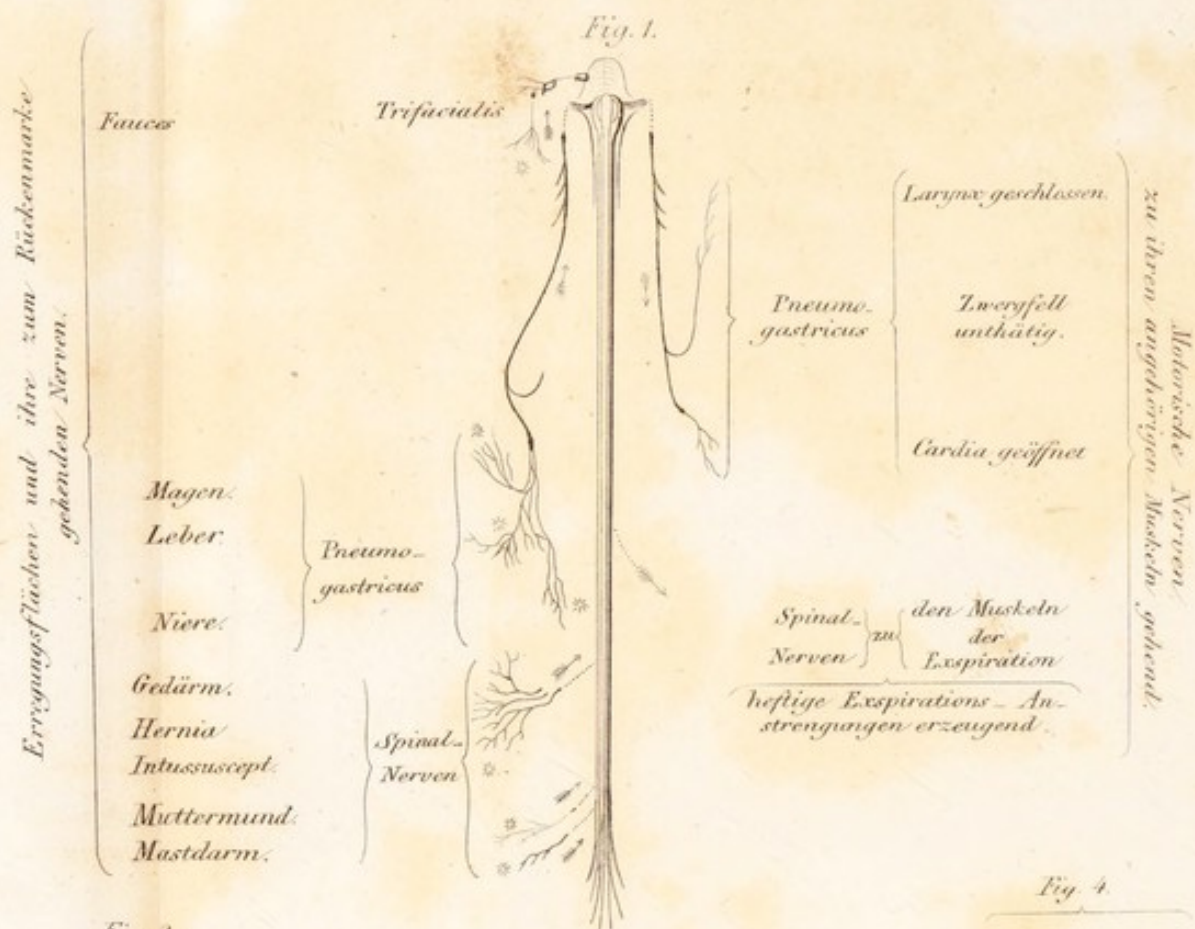 Fig. 1.
Erregungsflächen und ihre zum Rückenmarke
gehenden Nerven.
Fauces
Trifacialis
Magen.
Leber.
Niere.
Pneumo-
gastricus
Gedärm.
Hernia
Intussuscept.
Muttermund.
Mastdarm.
Spinal-
Nerven
Pneumo-
gastricus
Larynx geschlossen.
Zwergfell
unthätig.
Cardia geöffnet
Spinal-
Nerven
zu
den Muskeln
der
Exspiration
heftige Exspirations-An-
strengungen erzeugend.
Motorische Nerven
zu ihren angehörigen Muskeln gehend.
Fig. 4.